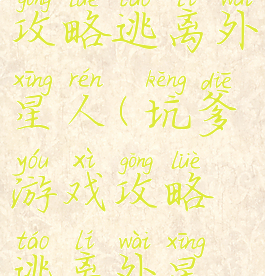 gōng lüè táo lí wài
攻略逃离外
xīng rén kēng diē
星人(坑爹
yóu xì gōng lüè
游戏攻略
táo lí wài xīng
逃离外星